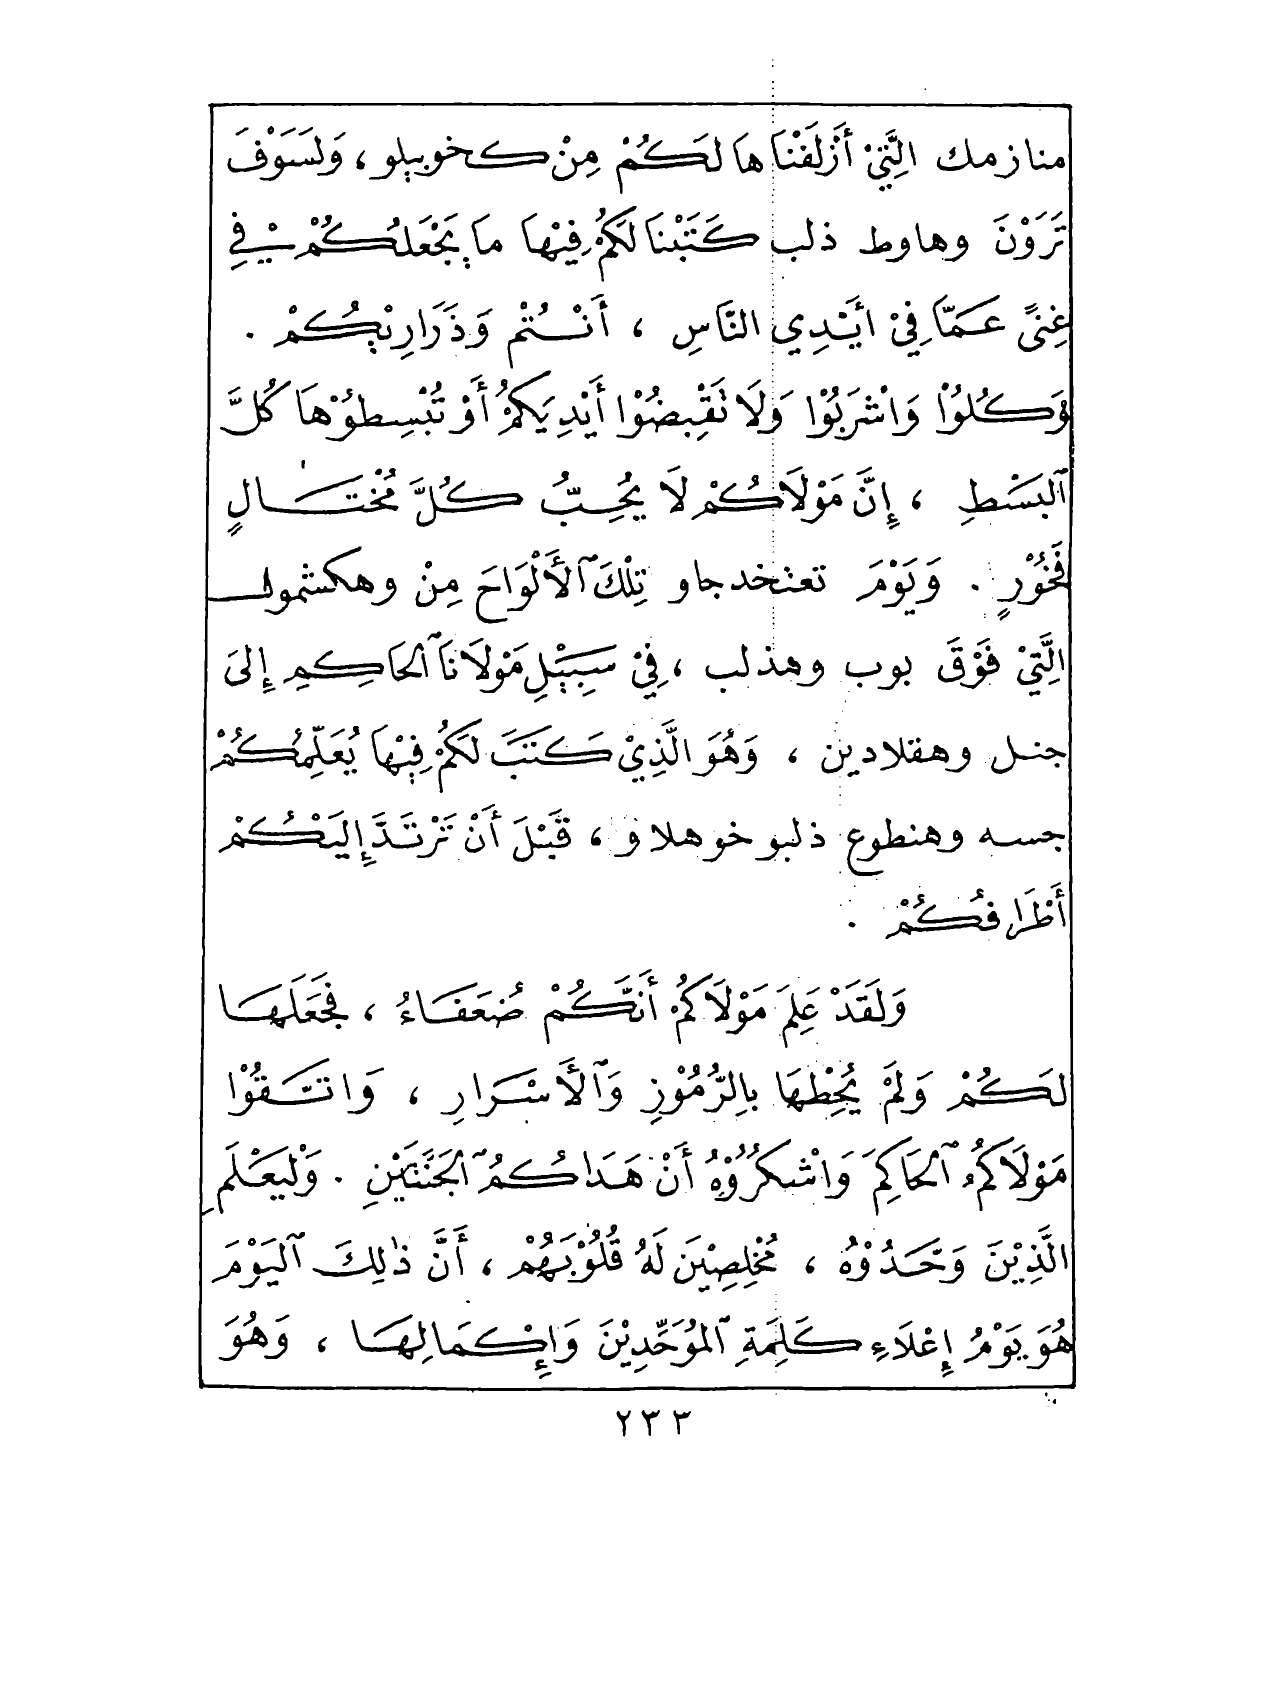 منازمك الَّتِيْ أَزْلَفْنَاهَا لَكُمْ مِنْ كخوبيلو ، وَلَسَوْفَ
تَرَوْنَ وهاوط ذلب كَتَبْنَا لَكُمْ فِيْهَا مَا يَجْعَلُكُمْ فِيْ
غِنىً عَمَّا فِيْ أَيْدِي النَّاسِ ، أَنْتُمْ وَذَرَارِيْكُمْ .
وَكُلُوْا وَاشْرَبُوْا وَلَا تَقْبِضُوْا أَيْدِيَكُمْ أَوْ تُبْسِطُوْهَا كُلَّ
ٱلْبَسْطِ ، إِنَّ مَوْلَاكُمْ لَا يُحِبُّ كُلَّ مُخْتَالٍ
فَخُوْرٍ . وَيَوْمَ تعتخدجاو تِلْكَ ٱلْأَلْوَاحَ مِنْ وهكشمول
الَّتِيْ فَوْقَ بوب وهذلب ، فِيْ سَبِيْلِ مَوْلَانَا ٱلْحَاكِمِ إِلىَ
جنل وهقلادين ، وَهُوَ الَّذِيْ كَتَبَ لَكُمْ فِيْهَا يُعَلِّمُكُمْ
جسه وهنطوع ذلبو خوهلاو ، قَبْلَ أَنْ تَرْتَدَّ إِلَيْكُمْ
أَطْرَافُكُمْ .
وَلَقَدْ عَلِمَ مَوْلَاكُمْ أَنَّكُمْ ضُعَفَاءُ ، فَجَعَلَهَا
لَكُمْ وَلَمْ يُحِطْهَا بِالرُّمُوْزِ وَٱلْأَسْرَارِ ، وَاتَّقُوْا
مَوْلَاكُمُ ٱلْحَاكِمَ وَاشْكُرُوْهُ أَنْ هَدَاكُمُ ٱلْجَنَّتَيْنِ . وَلْيَعْلَمِ
الَّذِيْنَ وَحَّدُوْهُ ، مُخْلِصِيْنَ لَهُ قُلُوْبَهُمْ ، أَنَّ ذٰلِكَ ٱلْيَوْمَ
هُوَ يَوْمُ إِعْلَاءِ كَلِمَةِ ٱلْمُوَحِّدِيْنَ وَإِكْمَالِهَا ، وَهُوَ
٢٣٣